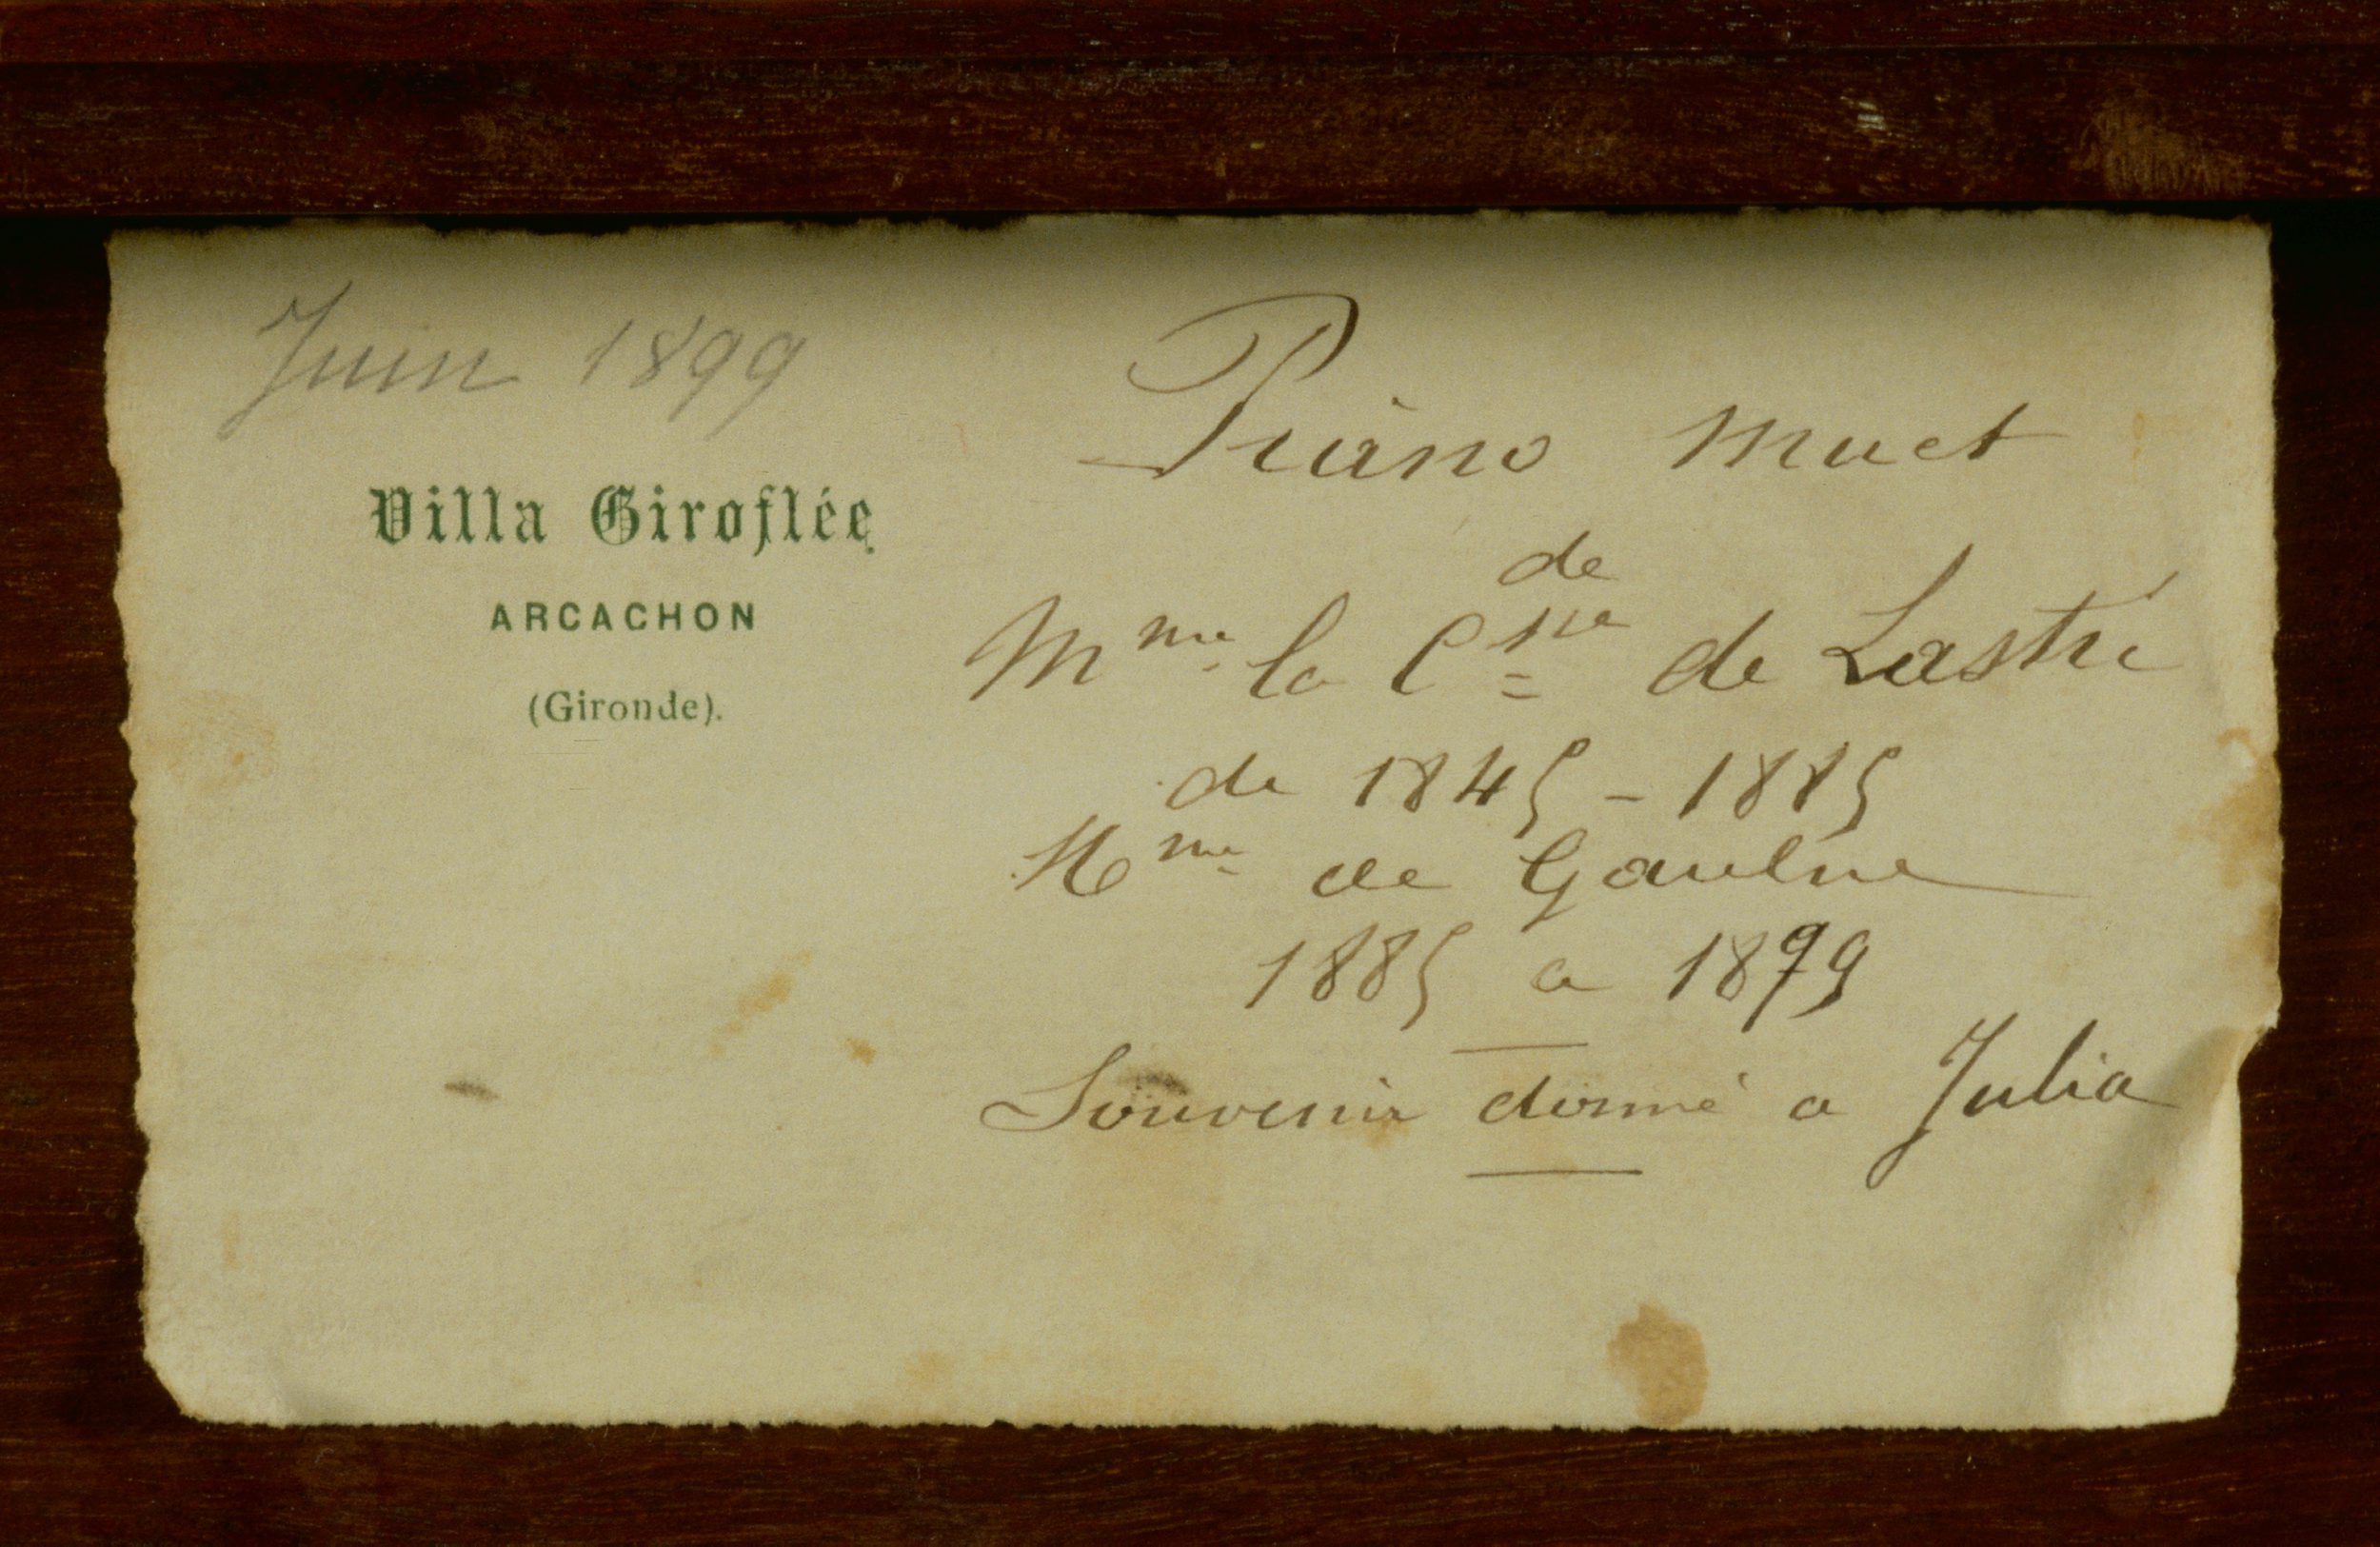 Juin 1899
Villa Giroflée
ARCACHON
(Gironde).
Piano muet
de
Mme la Ctsse de Lastic
de 1845 - 1885
Mme de Gaulne
1885 a 1899
Souvenir donné a Julia